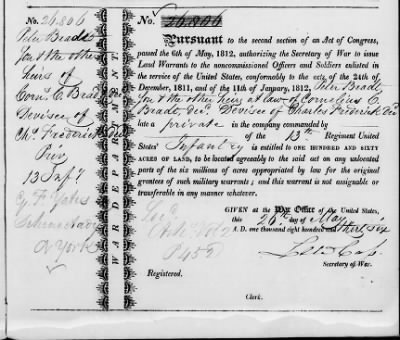 No. 26.806
Peter Beadt
Son & the other
heirs of
Corns. C. Beadt dec
Devisee of
Chs. Frederick dec
Priv
13 Inf. 7
G. F. Yates
Schenectady
N York
WAR DEPARTMENT
No. 26.806
Pursuant to the second section of an Act of Congress,
passed the 6th of May, 1812, authorizing the Secretary of War to issue
Land Warrants to the noncommissioned Officers and Soldiers enlisted in
the service of the United States, conformably to the acts of the 24th of
December, 1811, and of the 11th of January, 1812, Peter Beadt
Son & the other heirs at law of Cornelius C.
Beadt, dec. Devisee of Charles Frederick dec
late a private in the company commanded by
of the 13th Regiment United
States' Infantry is entitled to ONE HUNDRED AND SIXTY
ACRES OF LAND, to be located agreeably to the said act on any unlocated
parts of the six millions of acres appropriated by law for the original
grantees of such military warrants; and this warrant is not assignable or
transferable in any manner whatever.
GIVEN at the War Office of the United States,
this 26th day of May
A. D. one thousand eight hundred and thirty six
Vol 2
P 452
Lew Cass
Secretary of War.
Registered.
Clerk.